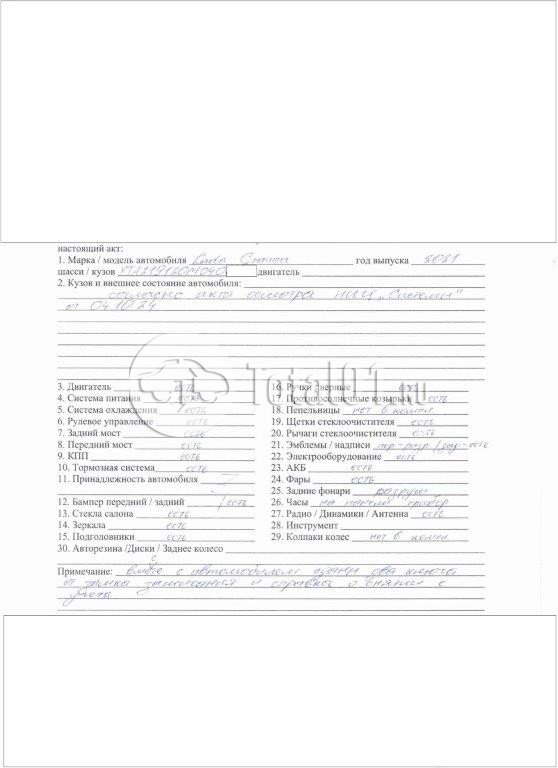 настоящий акт:
1. Марка / модель автомобиля Lada Granta год выпуска 2021
шасси / кузов двигатель
2. Кузов и внешнее состояние автомобиля:
согласно акта осмотра НИЦ „Системи"
от 04.10.24
Total01.ru
3. Двигатель есть
4. Система питания есть
5. Система охлаждения есть
6. Рулевое управление есть
7. Задний мост есть
8. Передний мост есть
9. КПП есть
10. Тормозная система есть
11. Принадлежность автомобиля
12. Бампер передний / задний / есть
13. Стекла салона есть
14. Зеркала есть
15. Подголовники есть
16. Ручки дверные есть
17. Противосолнечные козырьки есть
18. Пепельницы нет в компл
19. Щетки стеклоочистителя есть
20. Рычаги стеклоочистителя есть
21. Эмблемы / надписи есть
22. Электрооборудование есть
23. АКБ есть
24. Фары есть
25. Задние фонари разруш
26. Часы на панели прибор
27. Радио / Динамики / Антенна есть
28. Инструмент
29. Колпаки колес нет в компл
30. Авторезина /Диски / Заднее колесо
Примечание: вместе с автомобилем сданы два ключа
от замка зажигания и справка о снятии с
учета